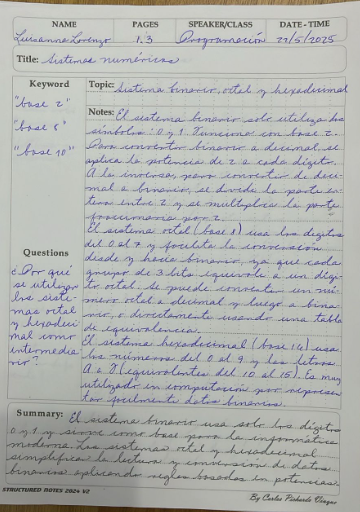 NAME PAGES SPEAKER/CLASS DATE - TIME
Luisanna Lorenzo 1.3 Programación 27/5/2025
Title: Sistemas numéricos
Keyword
"base 2"
"base 8"
"base 10"
Questions
¿Por qué
se utilizan
los siste-
mas octal
y hexadeci
mal como
intermedia
rio?
Topic: Sistema binario, octal y hexadecimal
Notes: El sistema binario solo utiliza los
símbolos: 0 y 1. Funciona con base 2.
Para convertir binario a decimal, se
aplica la potencia de 2 a cada dígito.
A la inversa, para convertir de deci-
mal a binario, se divide la parte en-
tera entre 2 y se multiplica la parte
fraccionaria por 2.
El sistema octal (base 8) usa los dígitos
del 0 al 7 y facilita la conversión
desde y hacia binario, ya que cada
grupo de 3 bits equivale a un dígi-
to octal. Se puede convertir un nú-
mero octal a decimal y luego a bina
rio, o directamente usando una tabla
de equivalencia.
El sistema hexadecimal (base 16) usa
los números del 0 al 9 y las letras
A a F (equivalentes del 10 al 15). Es muy
utilizado en computación por represen
tar facilmente datos binarios.
Summary: El sistema binario usa solo los dígitos
0 y 1 y sirve como base para la informática
moderna. Los sistemas octal y hexadecimal
simplifica la lectura y conversión de datos
binarios aplicando reglas basadas en potencias.
STRUCTURED NOTES 2024 V2
By Carlos Pichardo Vizque